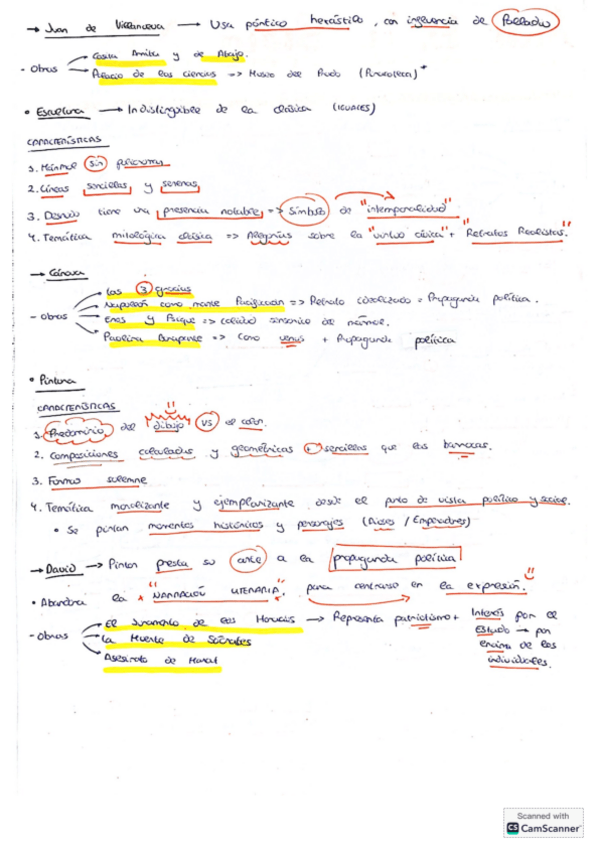 → Juan de Villanueva → Usa pórtico hexástilo, con influencia de Palladio
- Obras
Casita Arriba y de Abajo.
Palacio de las ciencias => Museo del Prado (Pinacoteca)*
• Escultura → Indistinguible de la clásica (IGUALES)
CARACTERÍSTICAS
1. Mármol sin policromía
2. Líneas sencillas y serenas
3. Desnudo tiene una presencia notable => Símbolo de "intemporalidad"
4. Temática mitológica clásica => Alegorías sobre la "virtud cívica" + "Retratos Realistas."
→ Cánova
- Obras
Las 3 gracias
Napoleón como marte Pacificador => Retrato idealizado = Propaganda política.
Eros y Psique => calidad sensorial de mármol.
Paulina Bonaparte => Como venus + Propaganda política
• Pintura
CARACTERÍSTICAS
1. Predominio del dibujo vs el color.
2. Composiciones calculadas y geométricas + sencillas que las barrocas.
3. Formas solemne
4. Temática moralizante y ejemplarizante desde el punto de vista político y social.
• Se pintan momentos históricos y personajes (Dioses / Emperadores)
→ David → Pintor presta su arte a la propaganda política
• Abandona la "NARRACIÓN LITERARIA" para centrarse en la expresión.
- Obras
El Juramento de los Horacios → Representa patriotismo + Interés por el Estado → por encima de los individuales.
La Muerte de Sócrates
Asesinato de Marat
Scanned with
CS CamScanner